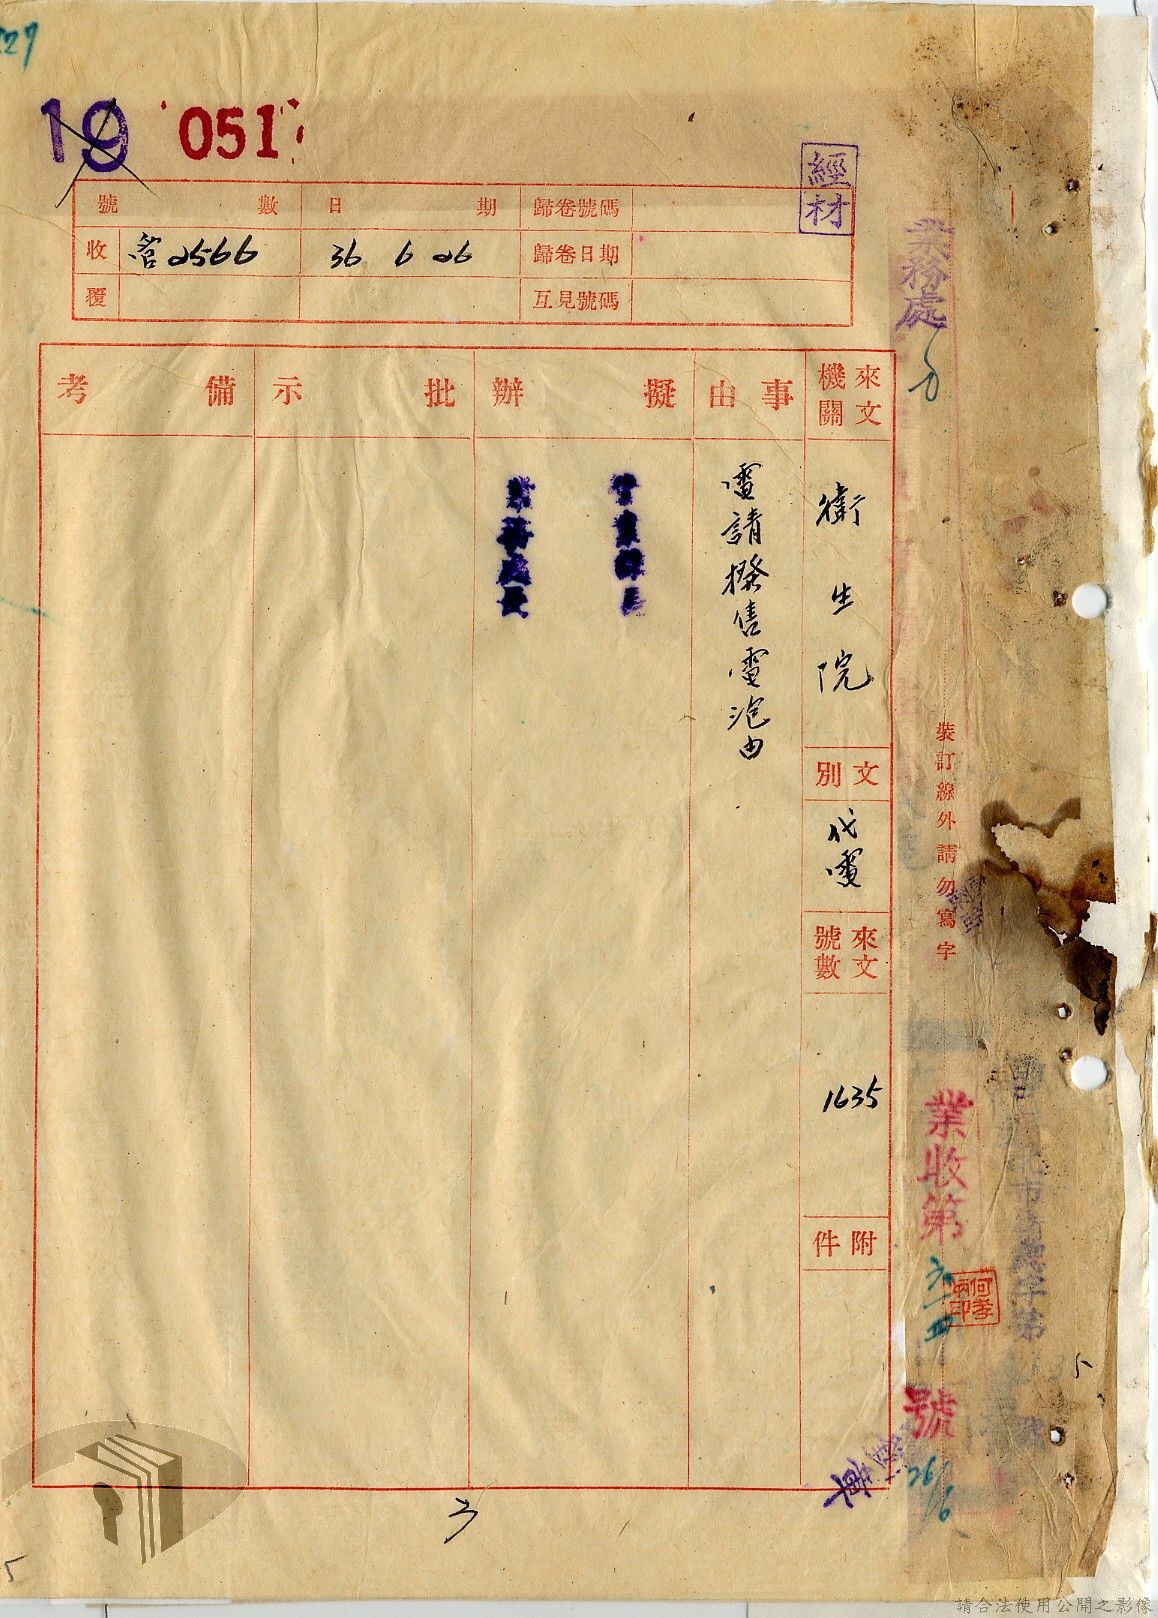 19
051
經材
號數
日期
歸卷號碼
收
2566
36 6 26
歸卷日期
覆
互見號碼
業務處
來文機關
事由
擬辦
批示
備考
衛生院
電請撥售電泡由
業務處長
文別
代電
來文號數
1635
附件
裝訂線外請勿寫字
業收第
號
26/6
請合法使用公開之影像